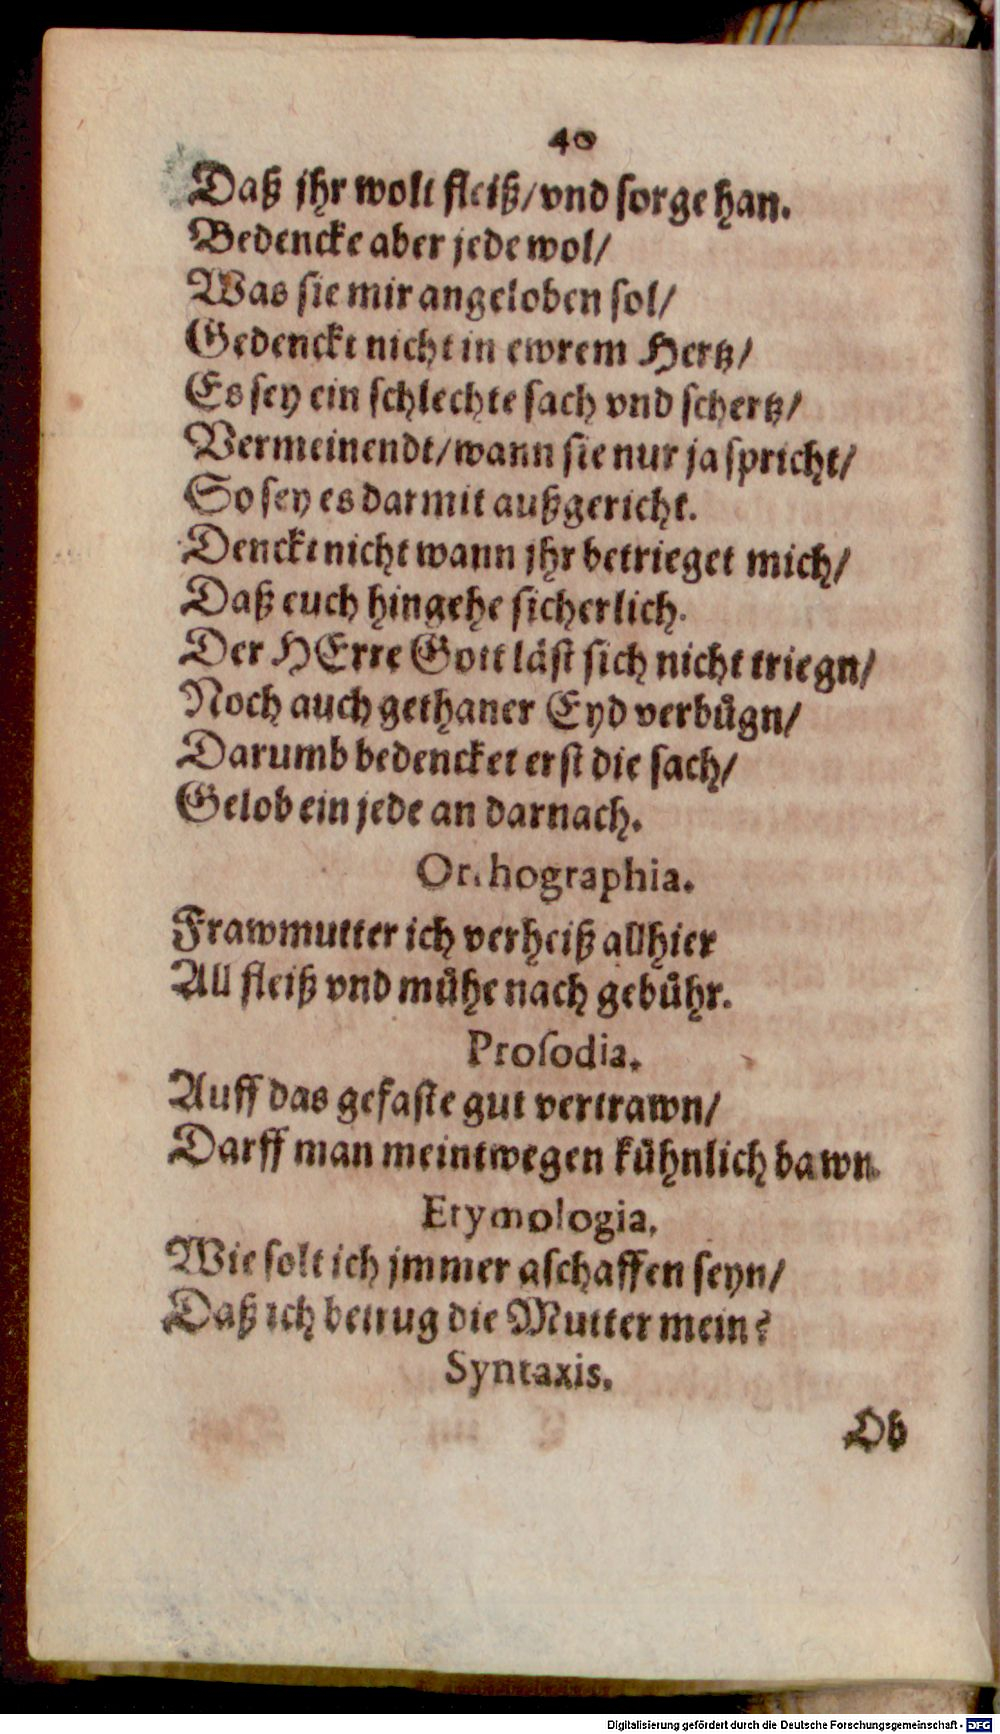 40
Daß jhr wolt fleiß/ vnd sorge han.
Bedencke aber jede wol/
Was sie mir angeloben sol/
Gedenckt nicht in ewrem Hertz/
Es sey ein schlechte sach vnd schertz/
Vermeinendt/ wann sie nur ja spricht/
So sey es darmit außgericht.
Denckt nicht wann jhr betrieget mich/
Daß euch hingehe sicherlich.
Der HErre Gott läst sich nicht triegn/
Noch auch gethaner Eyd verbuͤgn/
Darumb bedencket erst die sach/
Gelob ein jede an darnach.
Orthographia.
Frawmutter ich verheiß allhier
All fleiß vnd muͤhe nach gebuͤhr.
Prosodia.
Auff das gefaste gut vertrawn/
Darff man meintwegen kuͤhnlich bawn
Etymologia.
Wie solt ich jmmer aschaffen seyn/
Daß ich betrug die Mutter mein?
Syntaxis.
Ob
Digitalisierung gefördert durch die Deutsche Forschungsgemeinschaft - DFG